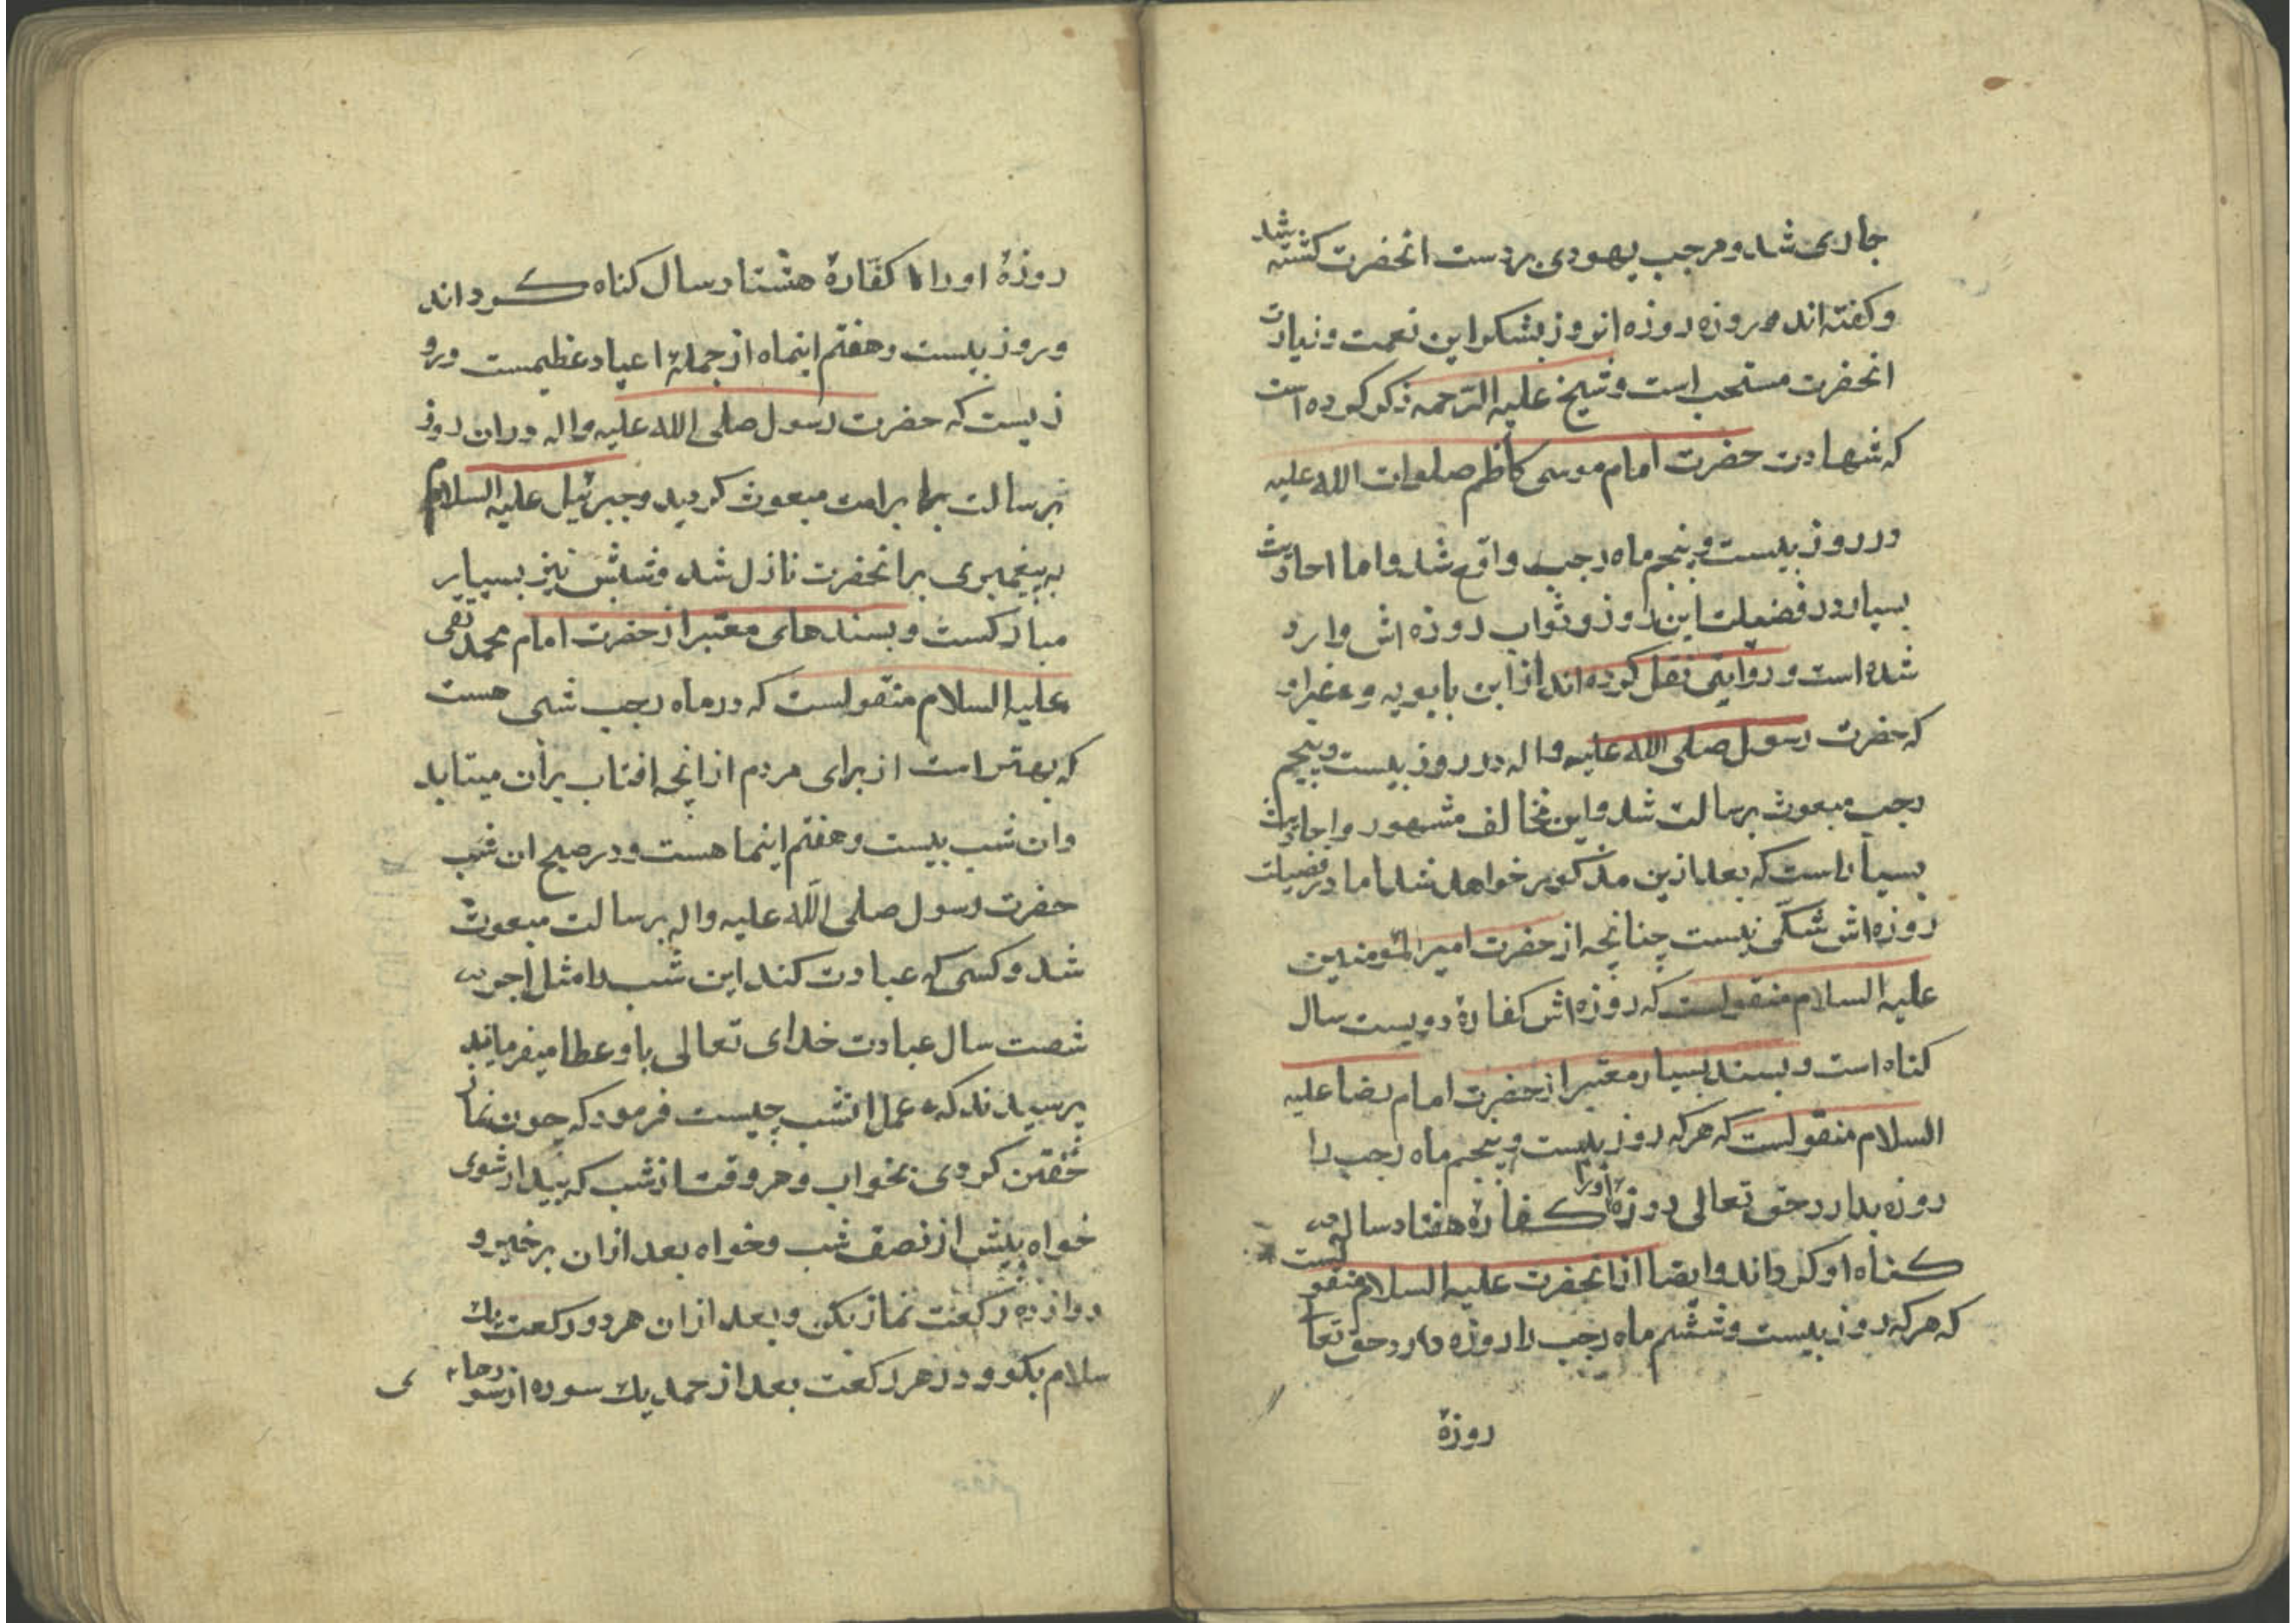 جاری شد ومرحب یهودی بردست انحضرت کشته شد
وکفته اند که روزه روزه انروز بشکر این نعمت وزیارت
انحضرت مستحب است وشیخ علیه الرّحمه ذکر کرده است
که شهادت حضرت امام موسی کاظم صلوات الله علیه
در روز بیست وپنجم ماه رجب واقع شد واما احادیث
بسیار در فضیلت این روز وثواب روزه اش وارد
شده است وروایتی نقل کرده اند از ابن بابویه وغیر او
که حضرت رسول صلی الله علیه واله در روز بیست وپنجم
رجب مبعوث برسالت شد واین مخالف مشهور واحادیث
بسیار است که بعد ازین مذکور خواهد شد اما در فضیلت
روزه اش شکّی نیست چنانچه از حضرت امیر المؤمنین
علیه السلام منقولست که روزه اش کفارهٔ دویست سال
کناه است وبسند بسیار معتبر از حضرت امام رضا علیه
السلام منقولست که هرکه روز بیست وپنجم ماه رجب را
روزه بدارد حق تعالی روزهٔ اورا کفارهٔ هفتاد سال
کناه او کرداند وایضا از انحضرت علیه السلام منقولست
که هرکه روز بیست وششم ماه رجب را روزه دارد حق تعا
روزهٔ
روزهٔ اورا کفّارهٔ هشتاد سال کناه کرداند
وروز بیست وهفتم اینماه از جملهٔ اعیاد عظیمست ورو
زیست که حضرت رسول صلی الله علیه واله دران روز
برسالت بر امت مبعوث کردید وجبرئیل علیه السلام
به پیغمبری بر انحضرت نازل شد وشبش نیز بسیار
مبارکست وبسندهای معتبر از حضرت امام محمد تقی
علیه السلام منقولست که در ماه رجب شبی هست
که بهتر است از برای مردم از انچه افتاب بران میتابد
وان شب بیست وهفتم اینماهست ودر صبح ان شب
حضرت رسول صلی الله علیه واله برسالت مبعوث
شد وکسی که عبادت کند این شب را مثل اجر
شصت سال عبادت خدای تعالی باو عطا میفرماید
پرسیدند که عمل انشب چیست فرمود که چون نماز
خفتن کردی بخواب وهر وقت از شب که بیدار شوی
خواه پیش از نصف شب وخواه بعد ازان برخیز و
دوازده رکعت نماز بکن وبعد ازان هر دو رکعت یک
سلام بکو ودر هر رکعت بعد از حمد یک سوره از سورهاء